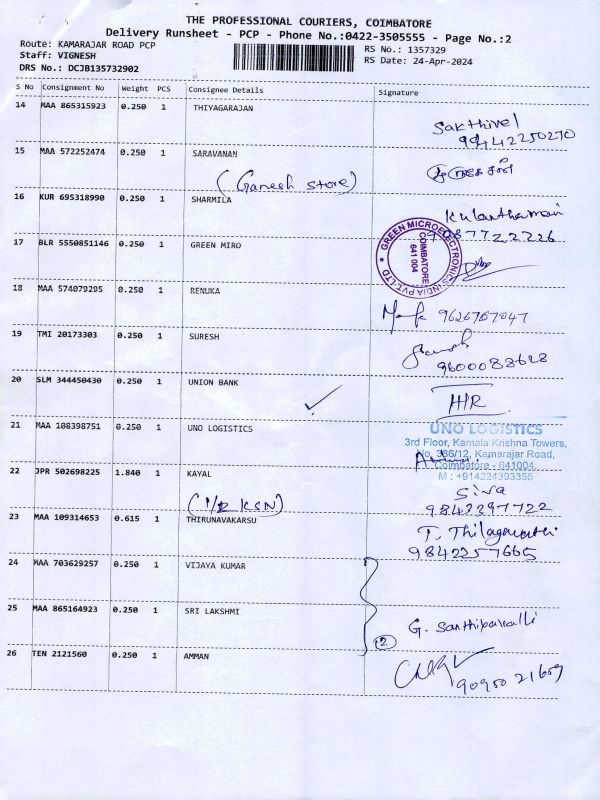 THE PROFESSIONAL COURIERS, COIMBATORE
Delivery Runsheet - PCP - Phone No.:0422-3505555 - Page No.:2
Route: KAMARAJAR ROAD PCP
Staff: VIGNESH
DRS No.: DCJB135732902
RS No.: 1357329
RS Date: 24-Apr-2024
S No Consignment No Weight PCS Consignee Details Signature
14 MAA 865315923 0.250 1 THIYAGARAJAN
Sakthivel
9944225 0270
15 MAA 572252474 0.250 1 SARAVANAN
(Ganesh Store)
16 KUR 695318990 0.250 1 SHARMILA
17 BLR 5550851146 0.250 1 GREEN MIRO
GREEN MICROELECTRONICS INDIA PVT. LTD
COIMBATORE
641 004
18 MAA 574079295 0.250 1 RENUKA
9626767847
19 TMI 20173303 0.250 1 SURESH
9600083628
20 SLM 344450430 0.250 1 UNION BANK
21 MAA 108398751 0.250 1 UNO LOGISTICS
UNO LOGISTICS
3rd Floor, Kamala Krishna Towers,
No. 366/12, Kamarajar Road,
Coimbatore - 641004
M : +914224393355
22 JPR 502698225 1.840 1 KAYAL
Siva
9842397722
23 MAA 109314653 0.615 1 THIRUNAVAKARSU
9842257665
24 MAA 703629257 0.250 1 VIJAYA KUMAR
25 MAA 865164923 0.250 1 SRI LAKSHMI
(2)
26 TEN 2121560 0.250 1 AMMAN